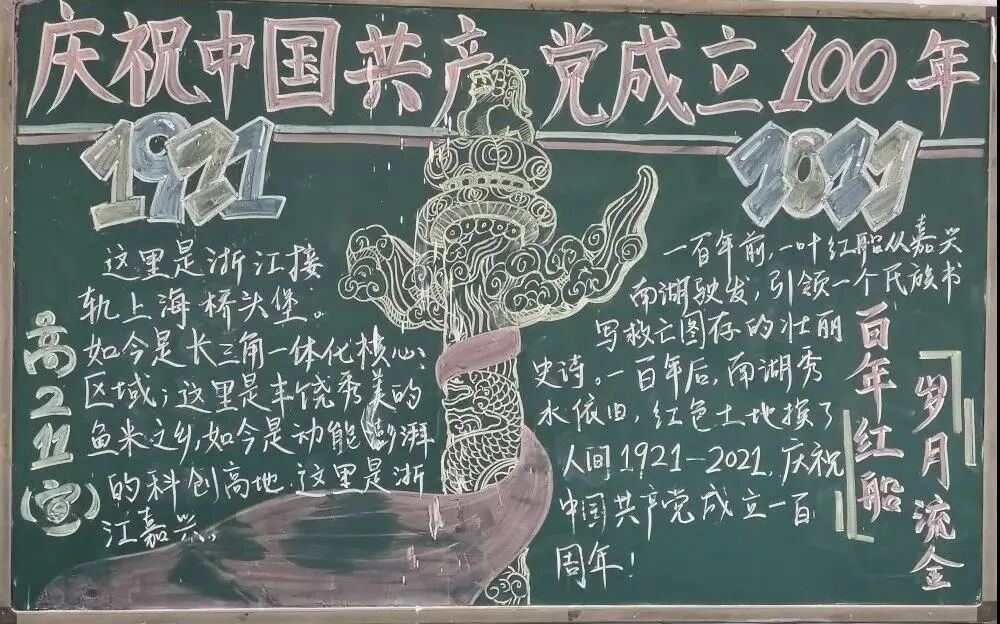 庆祝中国共产党成立100年
1921
2021
高211(宣)
这里是浙江接
轨上海桥头堡。
如今是长三角一体化核心、
区域;这里是丰饶秀美的
鱼米之乡,如今是动能澎湃
的科创高地.这里是浙
江嘉兴。
一百年前,一叶红船从嘉兴
南湖驶发,引领一个民族书
写救亡图存的壮丽
史诗。一百年后,南湖秀
水依旧,红色土地换了
人间1921-2021,庆祝
中国共产党成立一百
周年!
百年红船
岁月流金